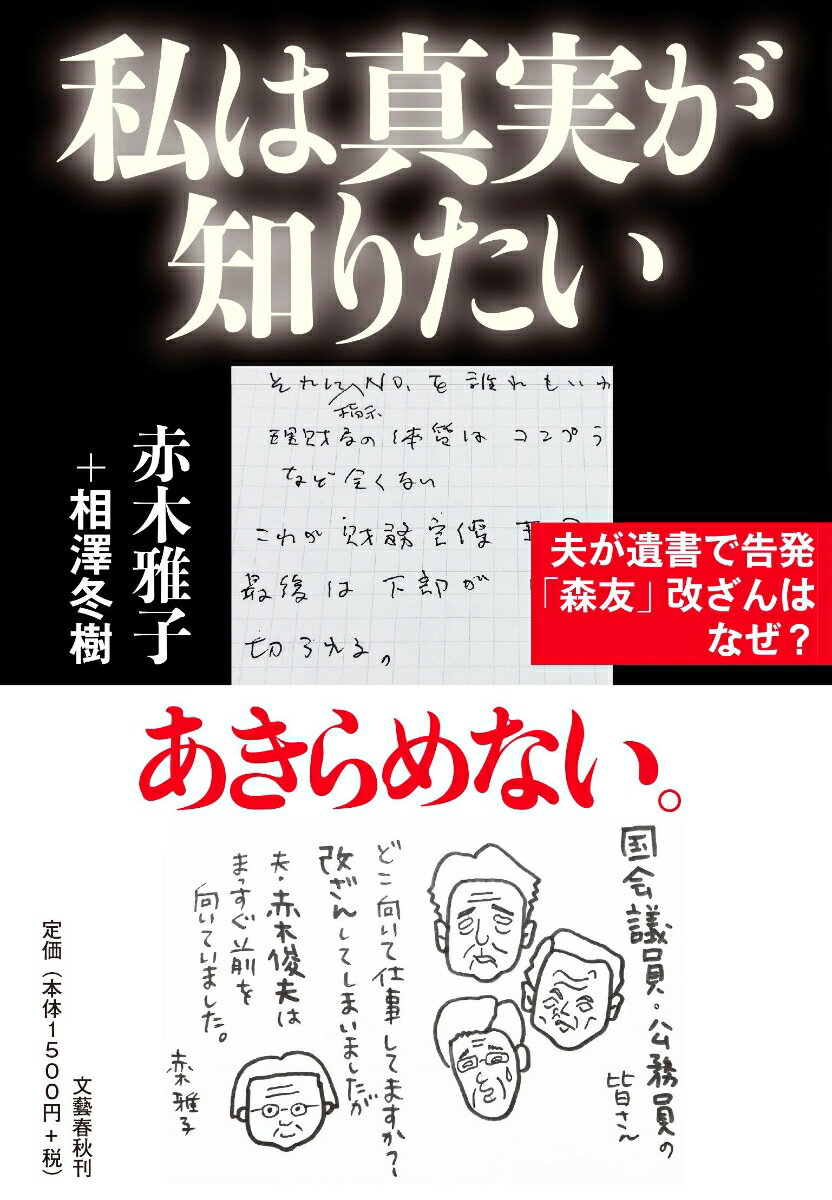 私は真実が
知りたい
赤木雅子
+相澤冬樹
それにNO,を誰れもいわ
指示
理財局の体質はコンプラ
など全くない
これが財務官僚
最後は下部が
切られる。
夫が遺書で告発
「森友」改ざんは
なぜ?
あきらめない。
国会議員・公務員の
皆さん
どこ向いて仕事してますか?
改ざんしてしまいましたが
夫・赤木俊夫は
まっすぐ前を
向いていました。
赤木雅子
文藝春秋刊
定価(本体1500円+税)